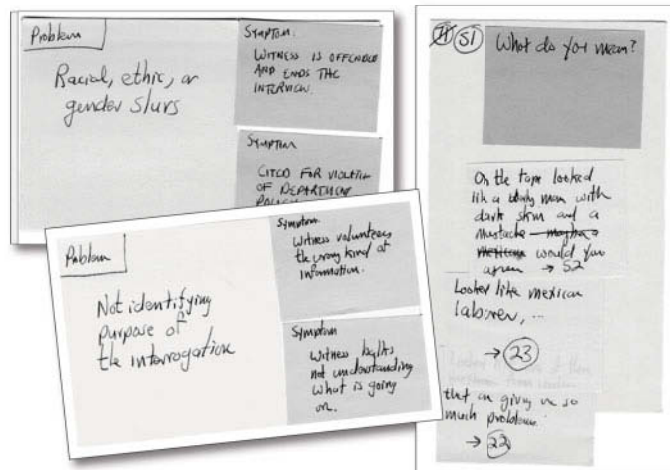 Problem
Racial, ethic, or
gender slurs
SYMPTOM.
WITNESS IS OFFENDED
AND ENDS THE
INTERVIEW.
SYMPTOM
CITED FOR VIOLATION
OF DEPARTMENT
Problem
Not identifying
purpose of
the interrogation
Symptom
Witness volunteers
the wrong kind of
information.
Symptom
Witness balks
not understanding
what is going
on.
51
What do you mean?
On the tape looked
lik a man with
dark skin and a
mustache would you
agree → 52
Looked like mexican
laborer, ...
→ 23
that are giving us so
much problems.
→ 22